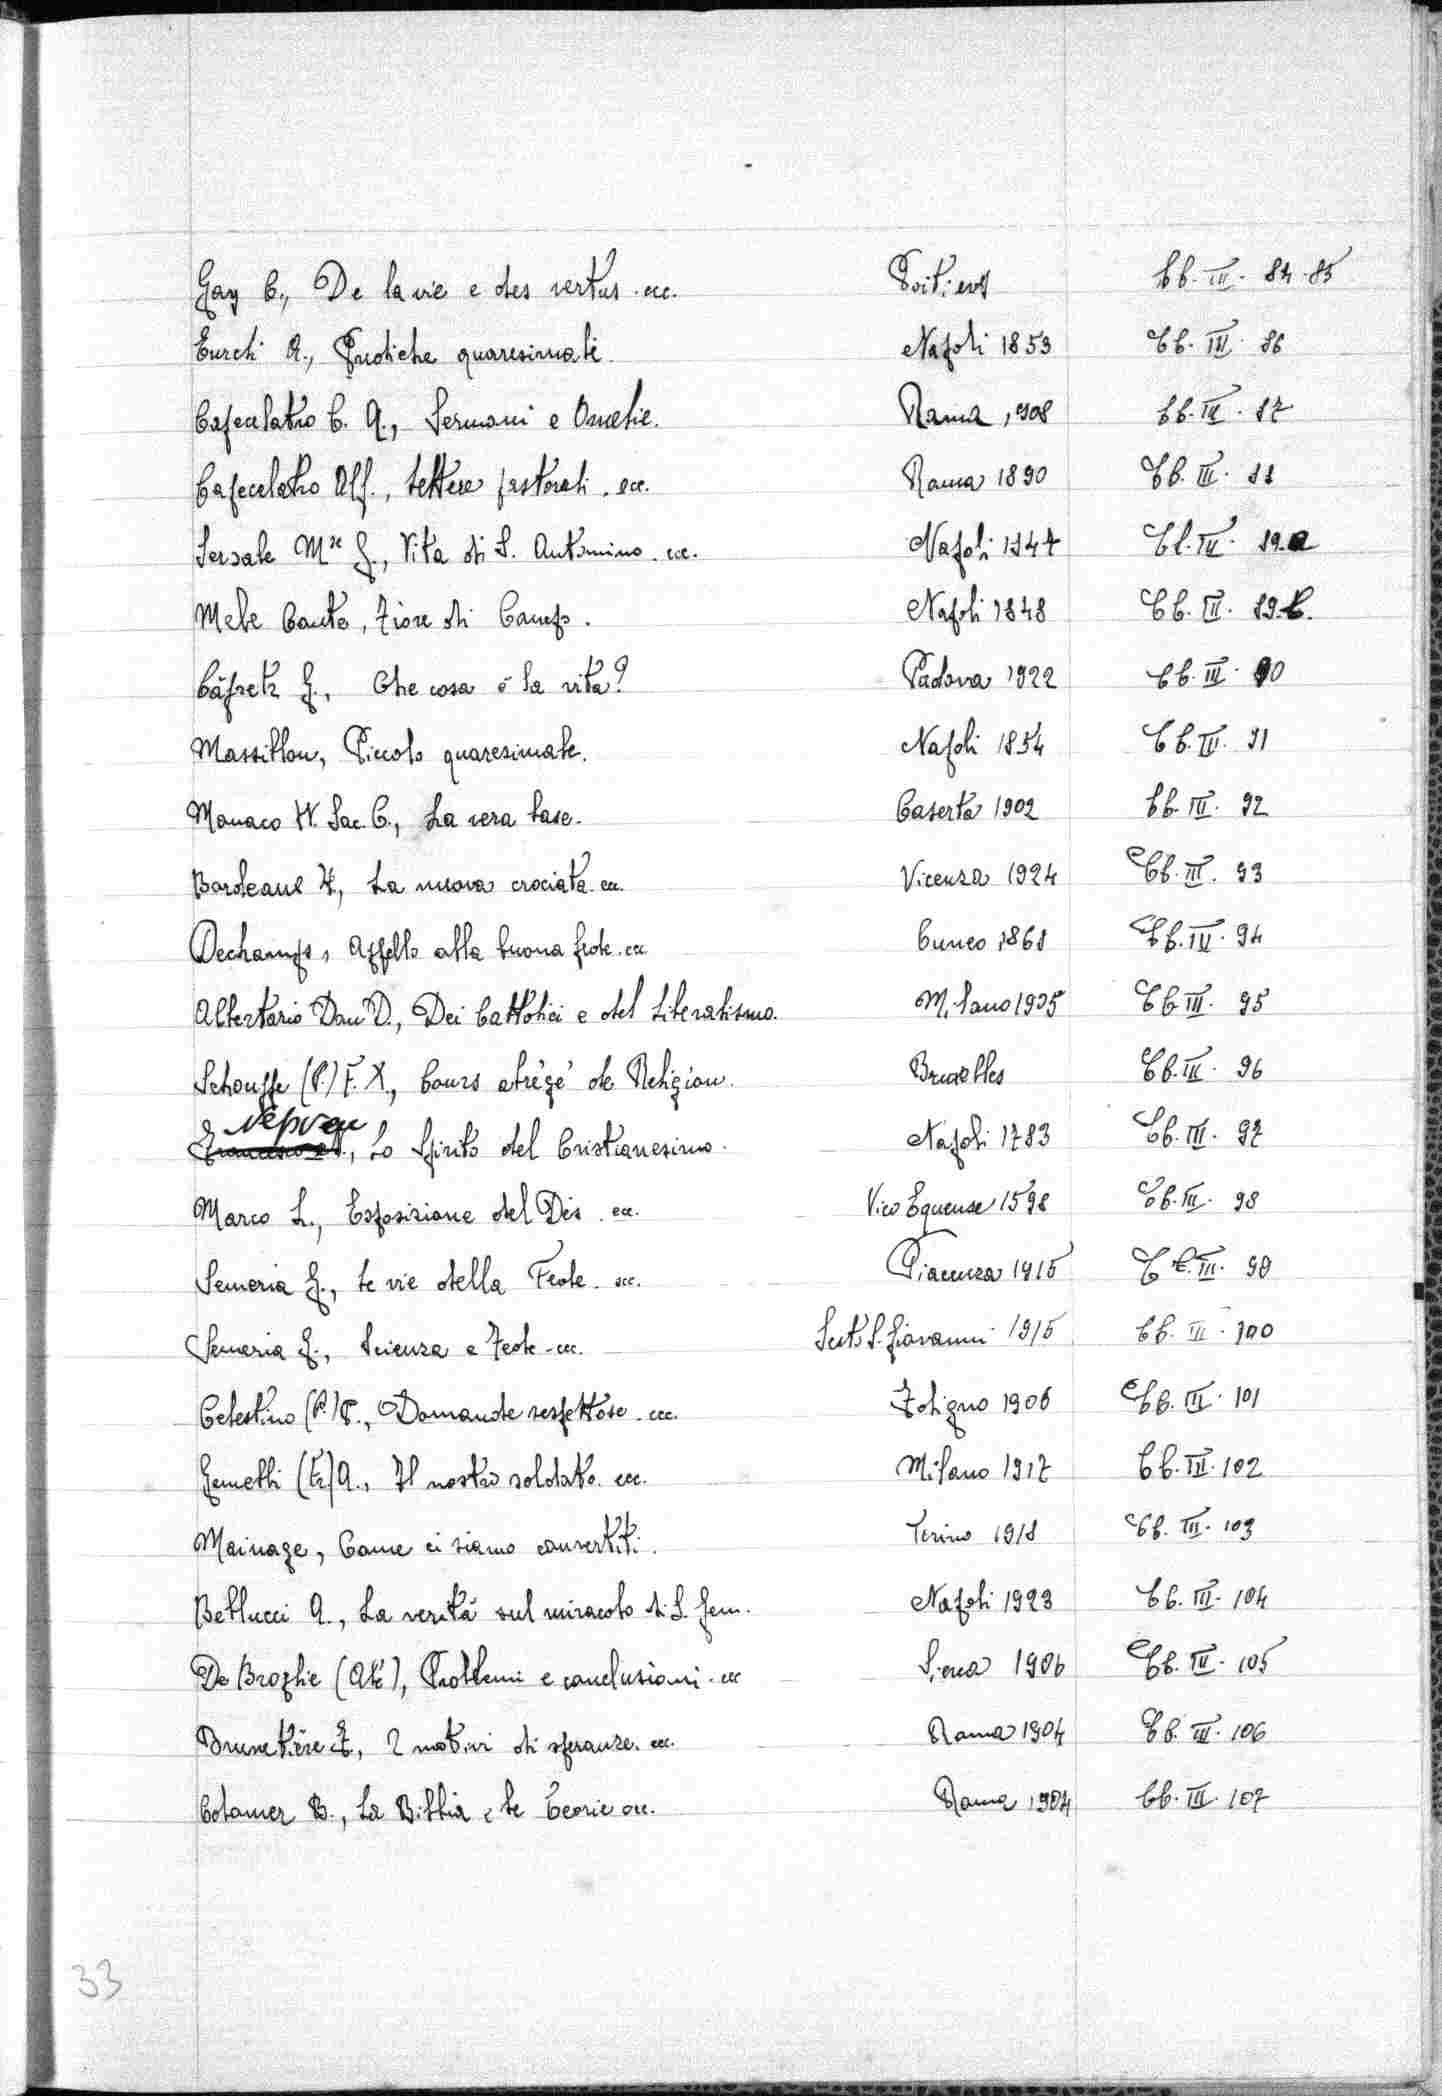 Gay C., De la vie e des vertus. ecc. Poitiers Cb. III. 84-85
Turchi A., Prediche quaresimali. Napoli 1853 Cb. III. 86
Capecelatro C. A., Sermoni e Omelie. Roma, 1908 Cb. III. 87
Capecelatro Alf., Lettere pastorali. ecc. Roma 1890 Cb. III. 88
Sersale Mr G., Vita di S. Antonino. ecc. Napoli Cb. III. 89-a
Mele Canto, Fiore di Campo. Napoli 1848 Cb. III. 89-b.
G., Che cosa è la vita? Padova 1922 Cb. III. 90
Massillon, Piccolo quaresimale. Napoli 1854 Cb. III. 91
Monaco N. Sac. C., La vera base. Caserta 1902 Cb. III. 92
Bordeaux H., La nuova crociata. ecc. Vicenza 1924 Cb. III. 93
Dechamps, Appello alla buona fede. ecc. Cuneo 1868 Cb. III. 94
Albertario Don D., Dei Cattolici e del Liberalismo. Milano 1905 Cb III. 95
Schouppe (P.) F. X., Cours abrégé de Religion. Bruxelles Cb. III. 96
Nepveu
Francesco, Lo Spirito del Cristianesimo. Napoli 1783 Cb. III. 97
Marco L., Esposizione del Dies. ecc. Vico Equense 1598 Cb. III. 98
Semeria G., Le vie della Fede. ecc. Piacenza 1915 Cb. III. 99
Semeria G., Scienza e Fede. ecc. Sesto S. Giovanni 1915 Cb. III. 100
Celestino (P.) P., Domande rispettose. ecc. Foligno 1906 Cb. III. 101
Gemelli (Fr.) A., Il nostro soldato. ecc. Milano 1917 Cb. III. 102
Mainage, Come ci siamo convertiti. Torino 1918 Cb. III. 103
Bellucci A., La verità sul miracolo di S. Gen. Napoli 1923 Cb. III. 104
De Broglie (Ab.), Problemi e conclusioni. ecc Siena 1906 Cb. III. 105
Brunetière F., I motivi di speranze. ecc. Roma 1904 Cb. III. 106
Colomer B., La Bibbia e le Teorie ecc. Roma 1904 Cb. III. 107
33